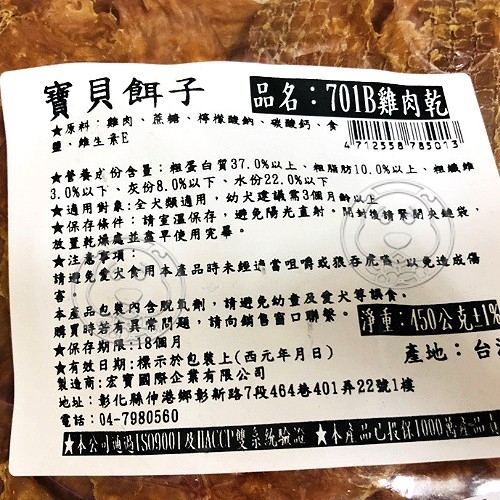 寶貝餌子
品名：701B雞肉乾
★原料：雞肉、蔗糖、檸檬酸鈉、碳酸鈣、食
鹽、維生素E
4712558785013
★營養成份含量：粗蛋白質37.0%以上、粗脂肪10.0%以上、粗纖維
3.0%以下、灰份8.0%以下、水份22.0%以下
★適用對象:全犬類適用，幼犬建議需3個月齡以上
★保存條件：請室溫保存，避免陽光直射。開封後請緊閉夾鏈袋，
放置乾燥處並盡早使用完畢。
★注意事項：
請避免愛犬食用本產品時未經適當咀嚼或狼吞虎嚥，以免造成傷
害
本產品包裝內含脫氧劑，請避免幼童及愛犬等誤食。
購買時若有異常問題，請向銷售窗口聯繫。
淨重：450公克±1%
★保存期限:18個月
產地：台
★有效日期:標示於包裝上(西元年月日)
製造商:宏寶國際企業有限公司
地址：彰化縣伸港鄉彰新路7段464巷401弄22號1樓
電話：04-7980560
★本公司通過ISO9001及HACCP雙系統驗證 ★本產品已投保1000萬產品